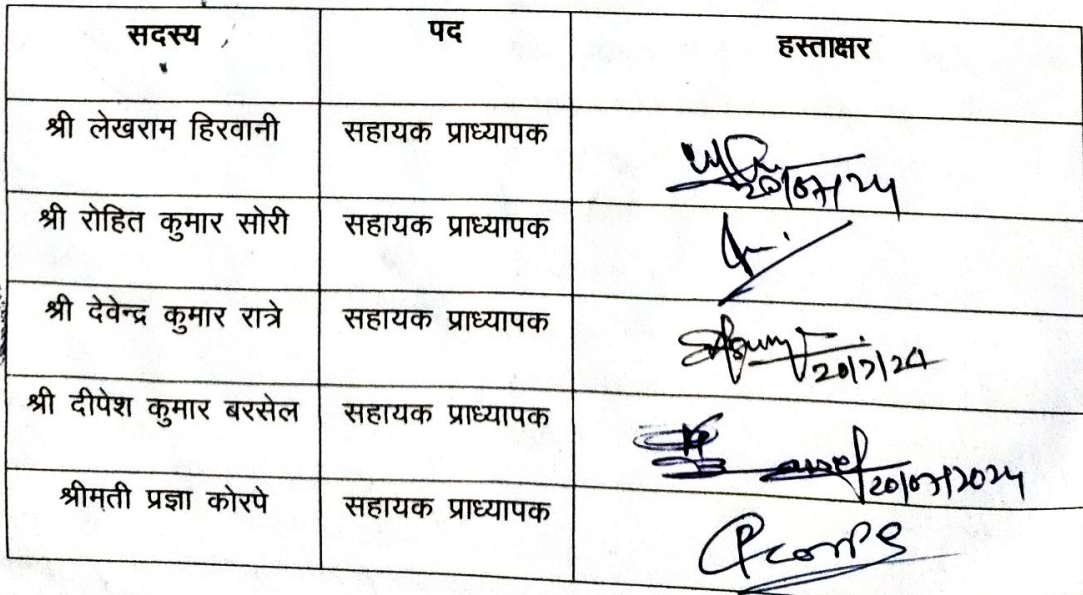 सदस्य पद हस्ताक्षर
श्री लेखराम हिरवानी सहायक प्राध्यापक
20/07/24
श्री रोहित कुमार सोरी सहायक प्राध्यापक
श्री देवेन्द्र कुमार रात्रे सहायक प्राध्यापक
20/7/24
श्री दीपेश कुमार बरसेल सहायक प्राध्यापक
20/07/2024
श्रीमती प्रज्ञा कोरपे सहायक प्राध्यापक